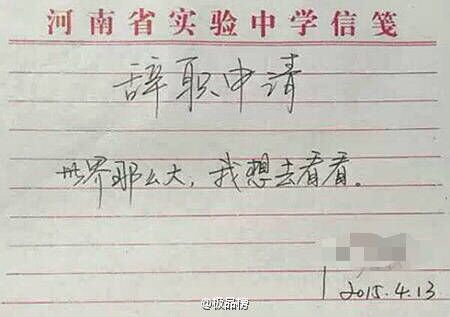 河南省实验中学信笺
辞职申请
世界那么大，我想去看看。
2015.4.13
@极品榜